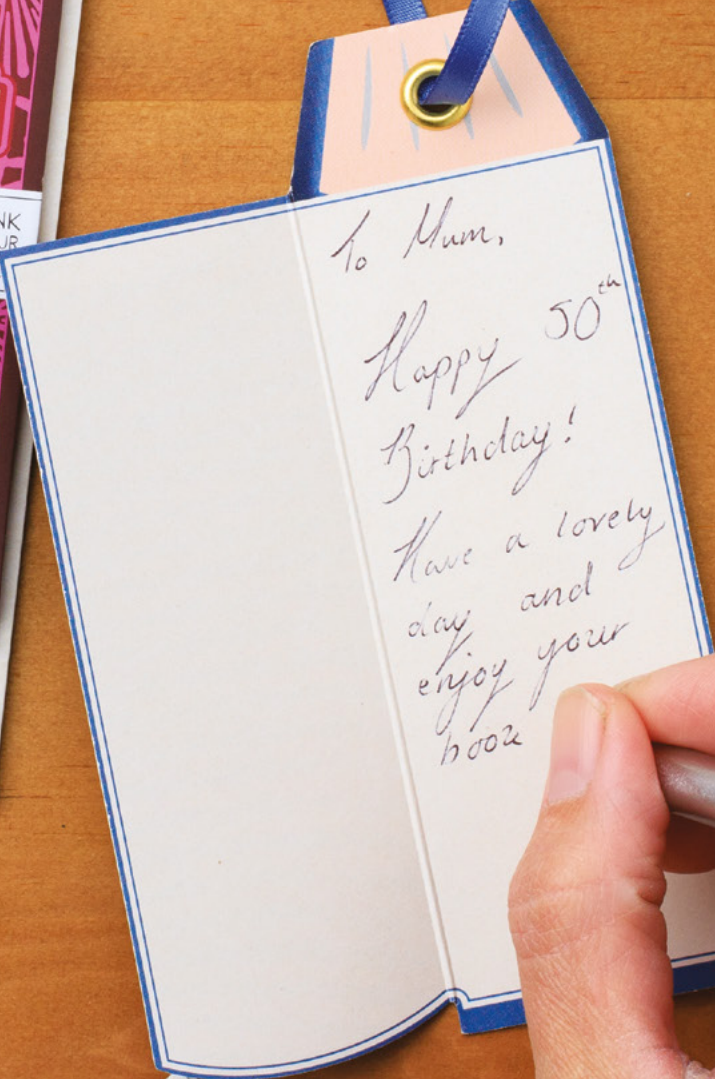 NK
UR
To Mum,
Happy 50th
Birthday!
Have a lovely
day and
enjoy your
booze